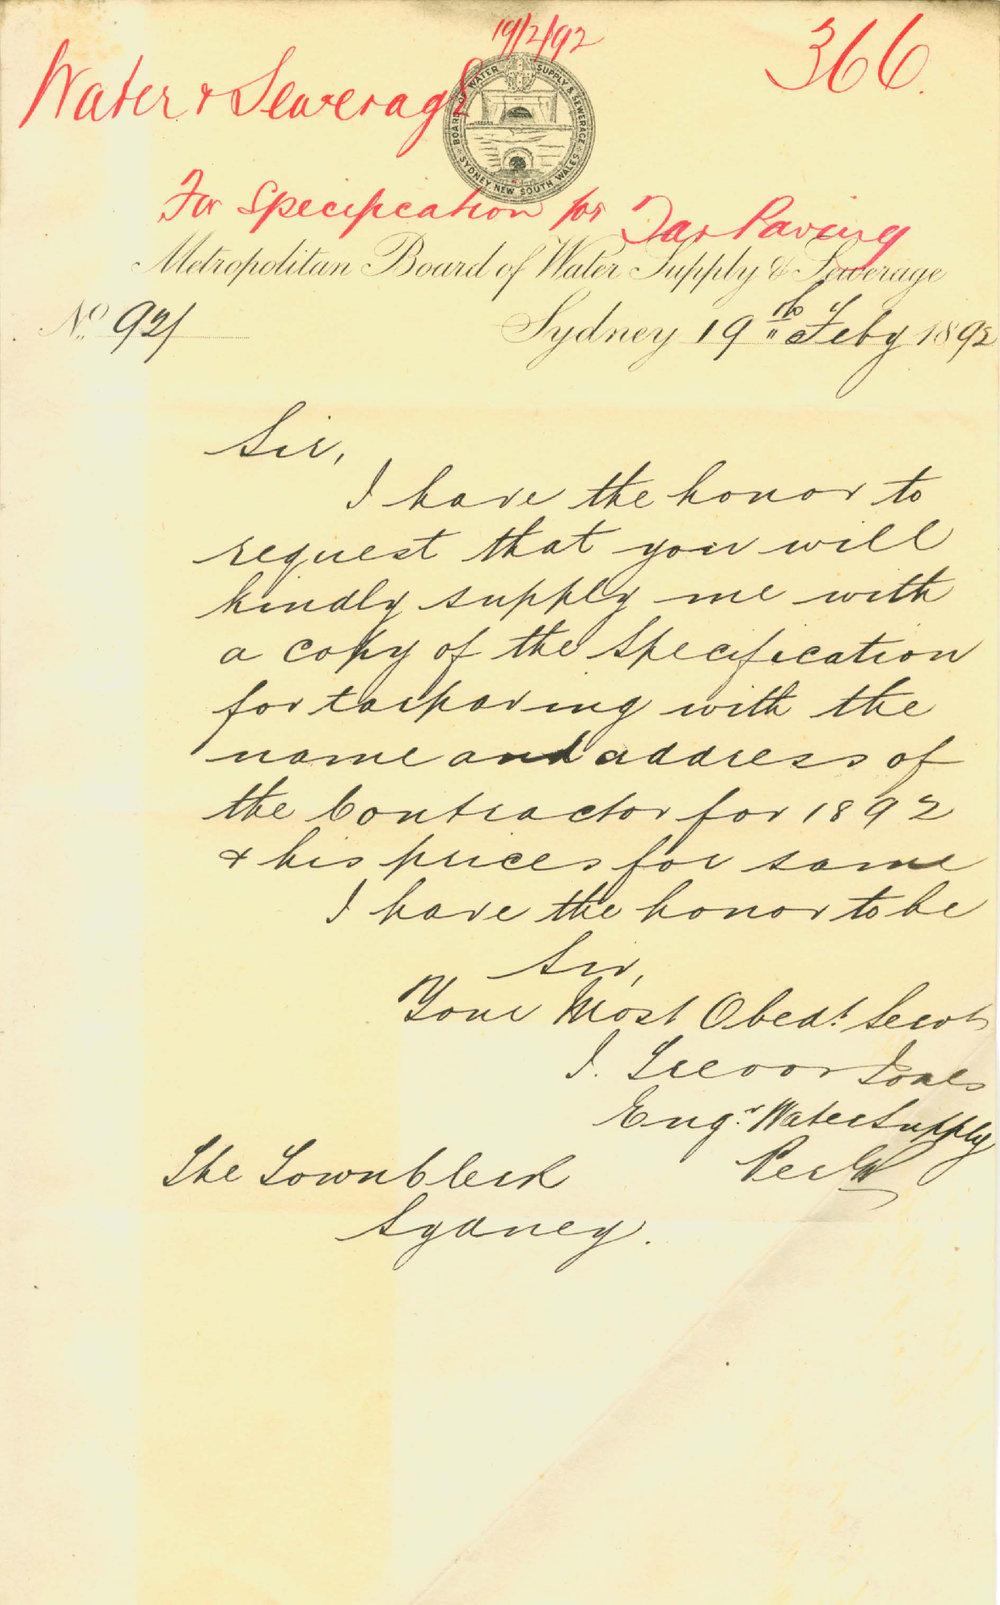 19/2/92
366.
Water & Sewerage
BOARD OF WATER SUPPLY & SEWERAGE
SYDNEY NEW SOUTH WALES
For Specification for Tar Paving
Metropolitan Board of Water Supply & Sewerage
No. 921
Sydney 19th Feby 1892
Sir,
I have the honor to
request that you will
kindly supply me with
a copy of the Specification
for tarpaving with the
name and address of
the Contractor for 1892
& his prices for same
I have the honor to be
Sir,
Your Most Obedt. Servt
J. Trevor Jones
Engr. Water Supply
Per
The Town Clerk
Sydney.